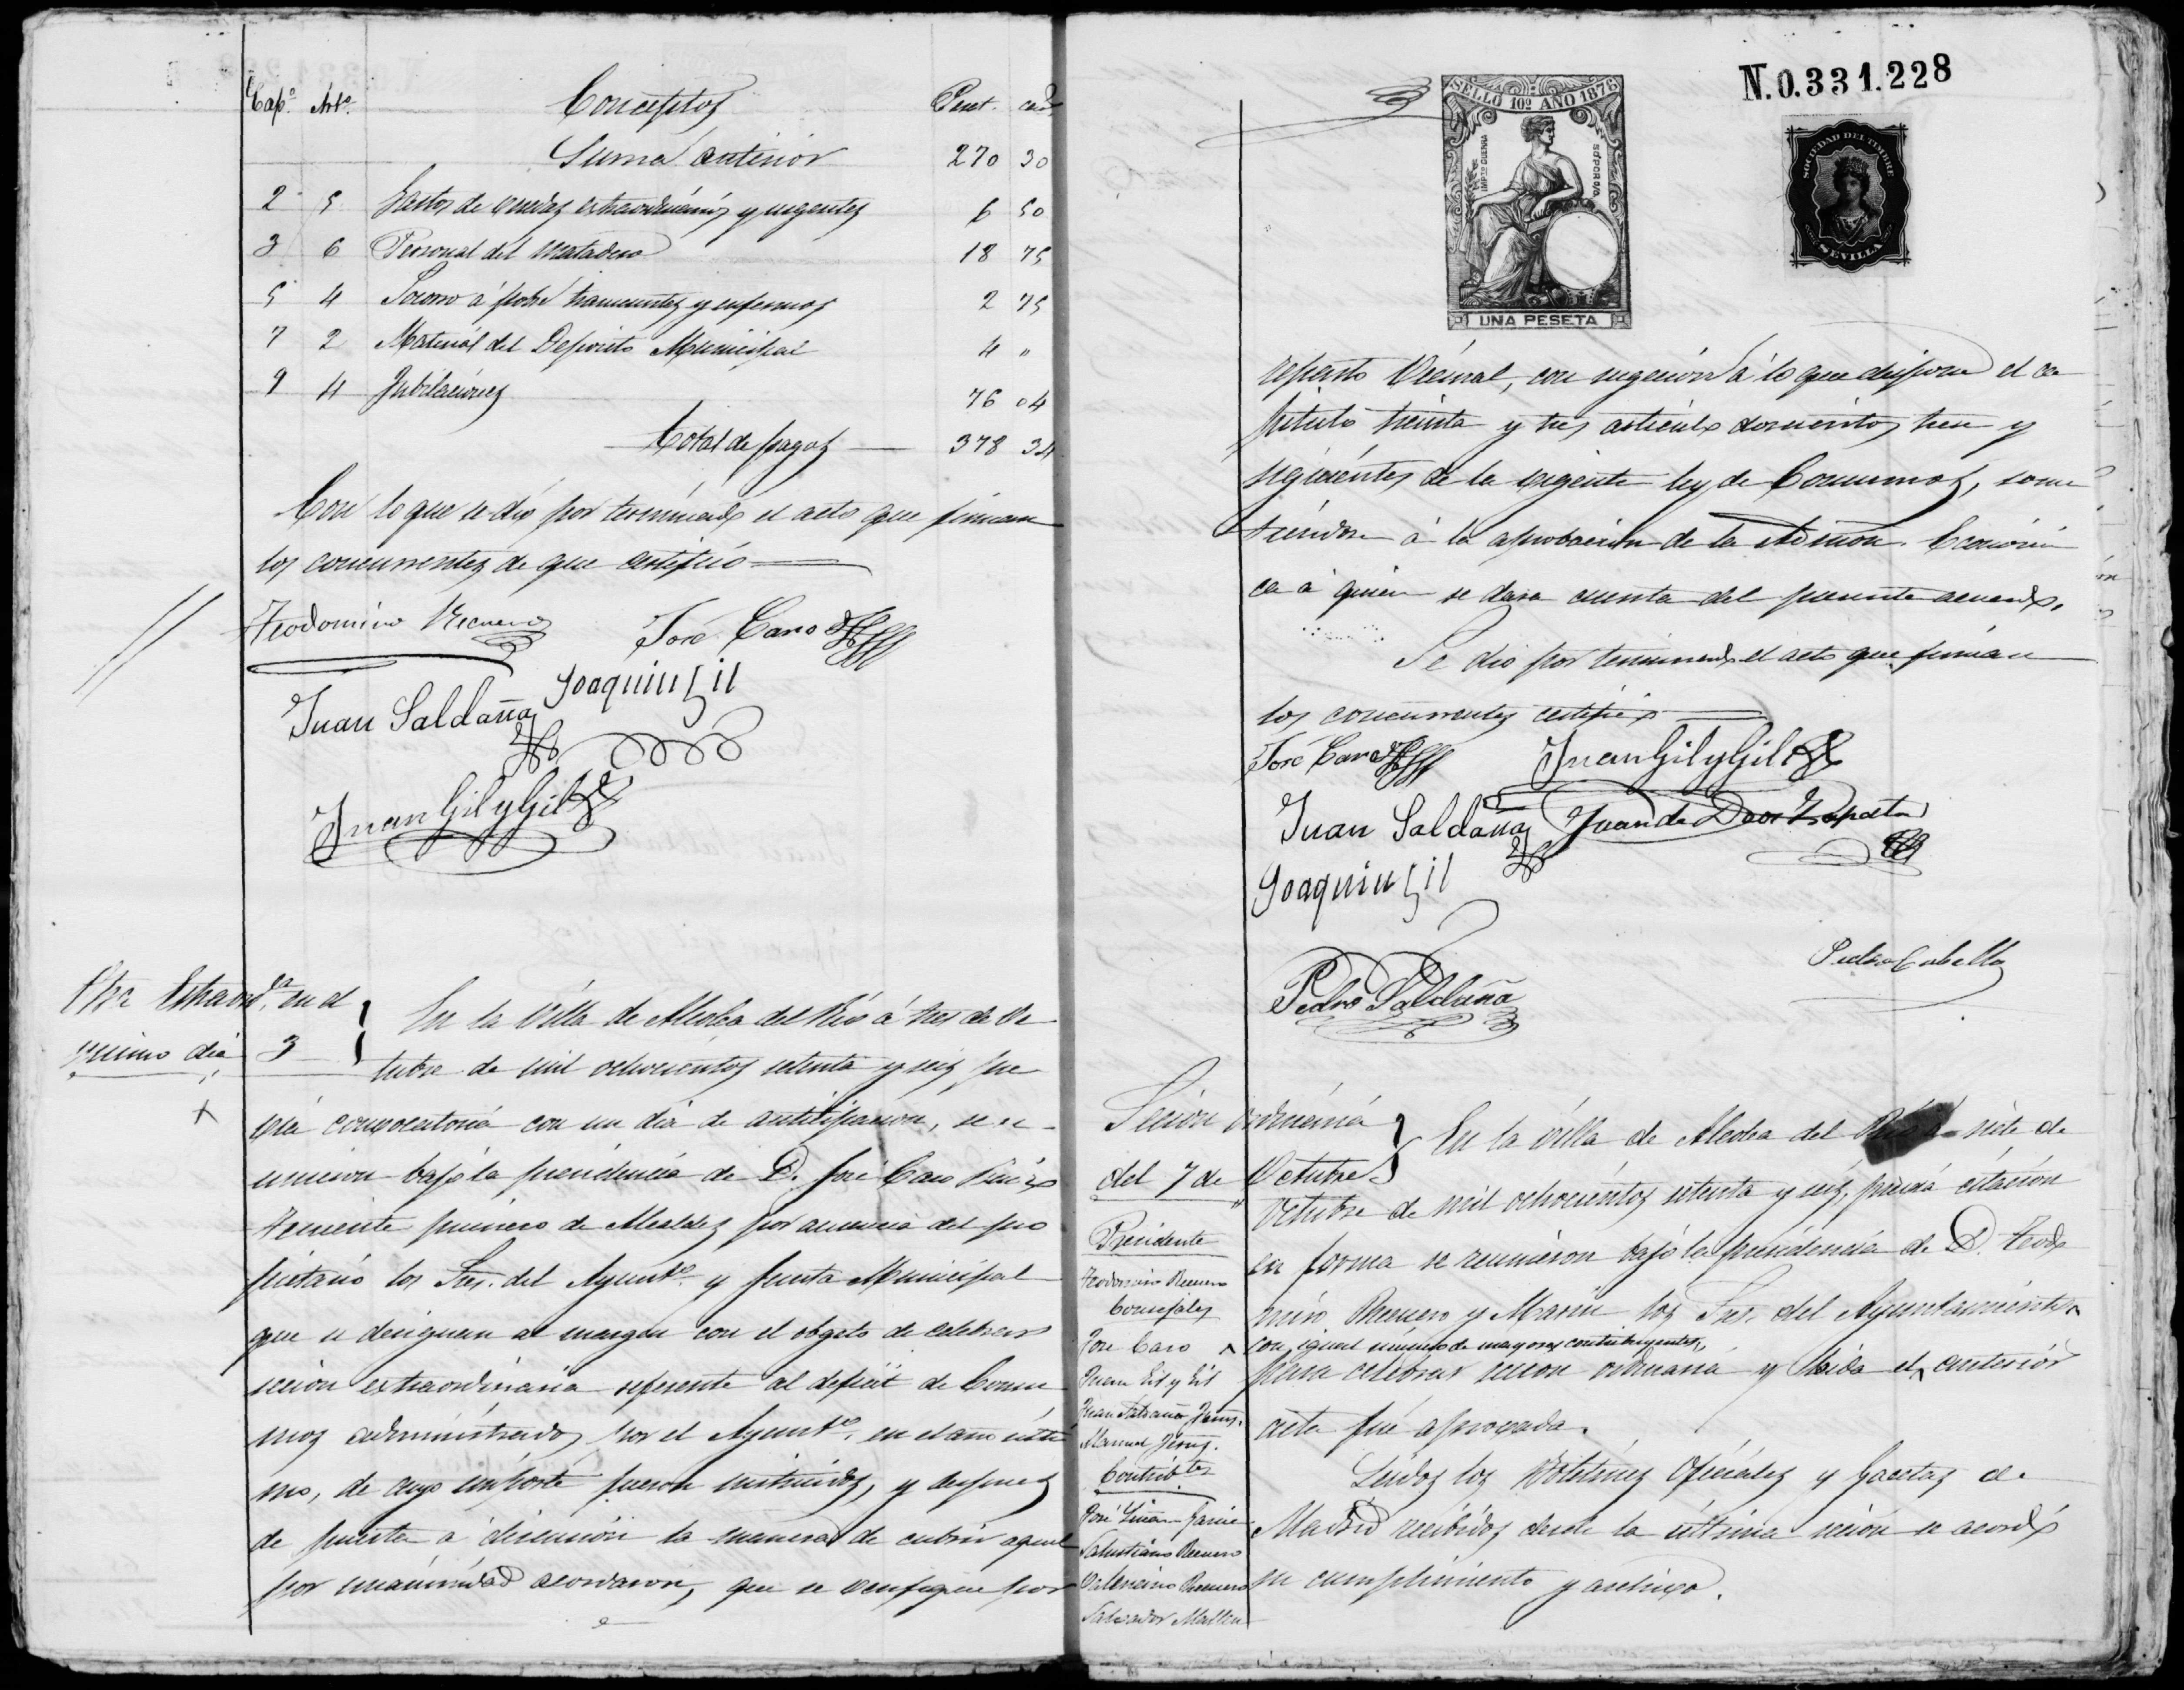 Cap.º Art.º Conceptos Pest. cs.
Suma anterior 270 30
2 5 Gastos de quedas extraordinarios y urgentes 6 50
3 6 Personal del matadero 18 75
5 4 Socorro á pobres transeuntes y enfermos 2 75
7 2 Material del Deposito Municipal 4 "
9 4 Jubilaciones 76 04
Total de pagos 378 34
Con lo que se dio por terminado el acto que firman
los concurrentes de que certifico
Teodomiro Recuero José Caro
Juan Saldaña Joaquin Gil
Juan Gil y Gil
Otra Estraord.ª en el
mismo dia 3
En la Villa de Alcolea del Rio á tres de Oc
tubre de mil ochocientos setenta y seis pre
via convocatoria con un dia de antitipacion, se re
unieron bajo la presidencia de D. José Caro
Teniente primero de Alcaldes por ausencia del pro
pietario los Sres. del Ayunt.º y Junta Municipal
que se designan al margen con el objeto de celebrar
secion extraordinaria referente al deficit de Consu
mos administrados por el Ayunt.º en el año ulti
mo, de cuyo importe fueron instruidos, y despues
de puesta a discucion la manera de cubrir aquel
por unanimidad acordaron, que se verifique por
N.0.331.228
SELLO 10º AÑO 1876
UNA PESETA
SOCIEDAD DEL TIMBRE
SEVILLA
reparto Vecinal, con sugecion á lo que dispone el ca
pitulo treinta y tres articulo doscientos trece y
siguientes de la vigente ley de Consumos, some
tiendose á la aprobacion de la Admon. Economi
ca á quien se dara cuenta del presente acuerdo.
Se dio por terminado el acto que firman
los concurrentes certifico
José Caro Juan Gil y Gil
Juan Saldaña Juan de Dios Zapata
Joaquin Gil
Pedro Cabello
Pedro Saldaña
Secion ordinaria
del 7 de Octubre
En la villa de Alcolea del Rio á siete de
Octubre de mil ochocientos setenta y seis, previa citacion
en forma se reunieron bajo la presidencia de D. Teodo
miro Recuero y Marin los Sres. del Ayuntamiento
con igual numero de mayores contribuyentes,
para celebrar secion ordinaria y leida el anterior
acta fué aprovada.
Leidos los Boletines Oficiales y Gacetas de
Madrid recibidos desde la ultima secion se acordó
su cumplimiento y archivo.
Presidente
Teodomiro Recuero
Concejales
José Caro
Juan Gil y Gil
Juan Saldaña
Manuel
Contrib.tes
José Garcia
Salustiano Recuero
Valeriano Recuero
Salvador Mallen